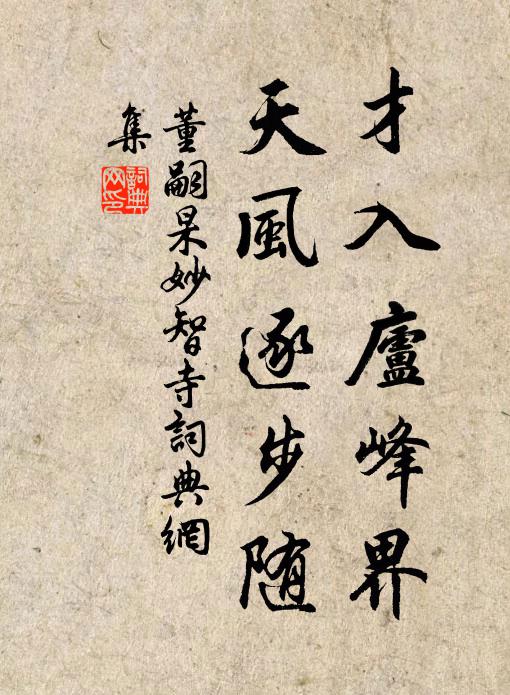 才入廬峰界
天風逐步随
董嗣杲妙智寺詞典網
集
詞典網印